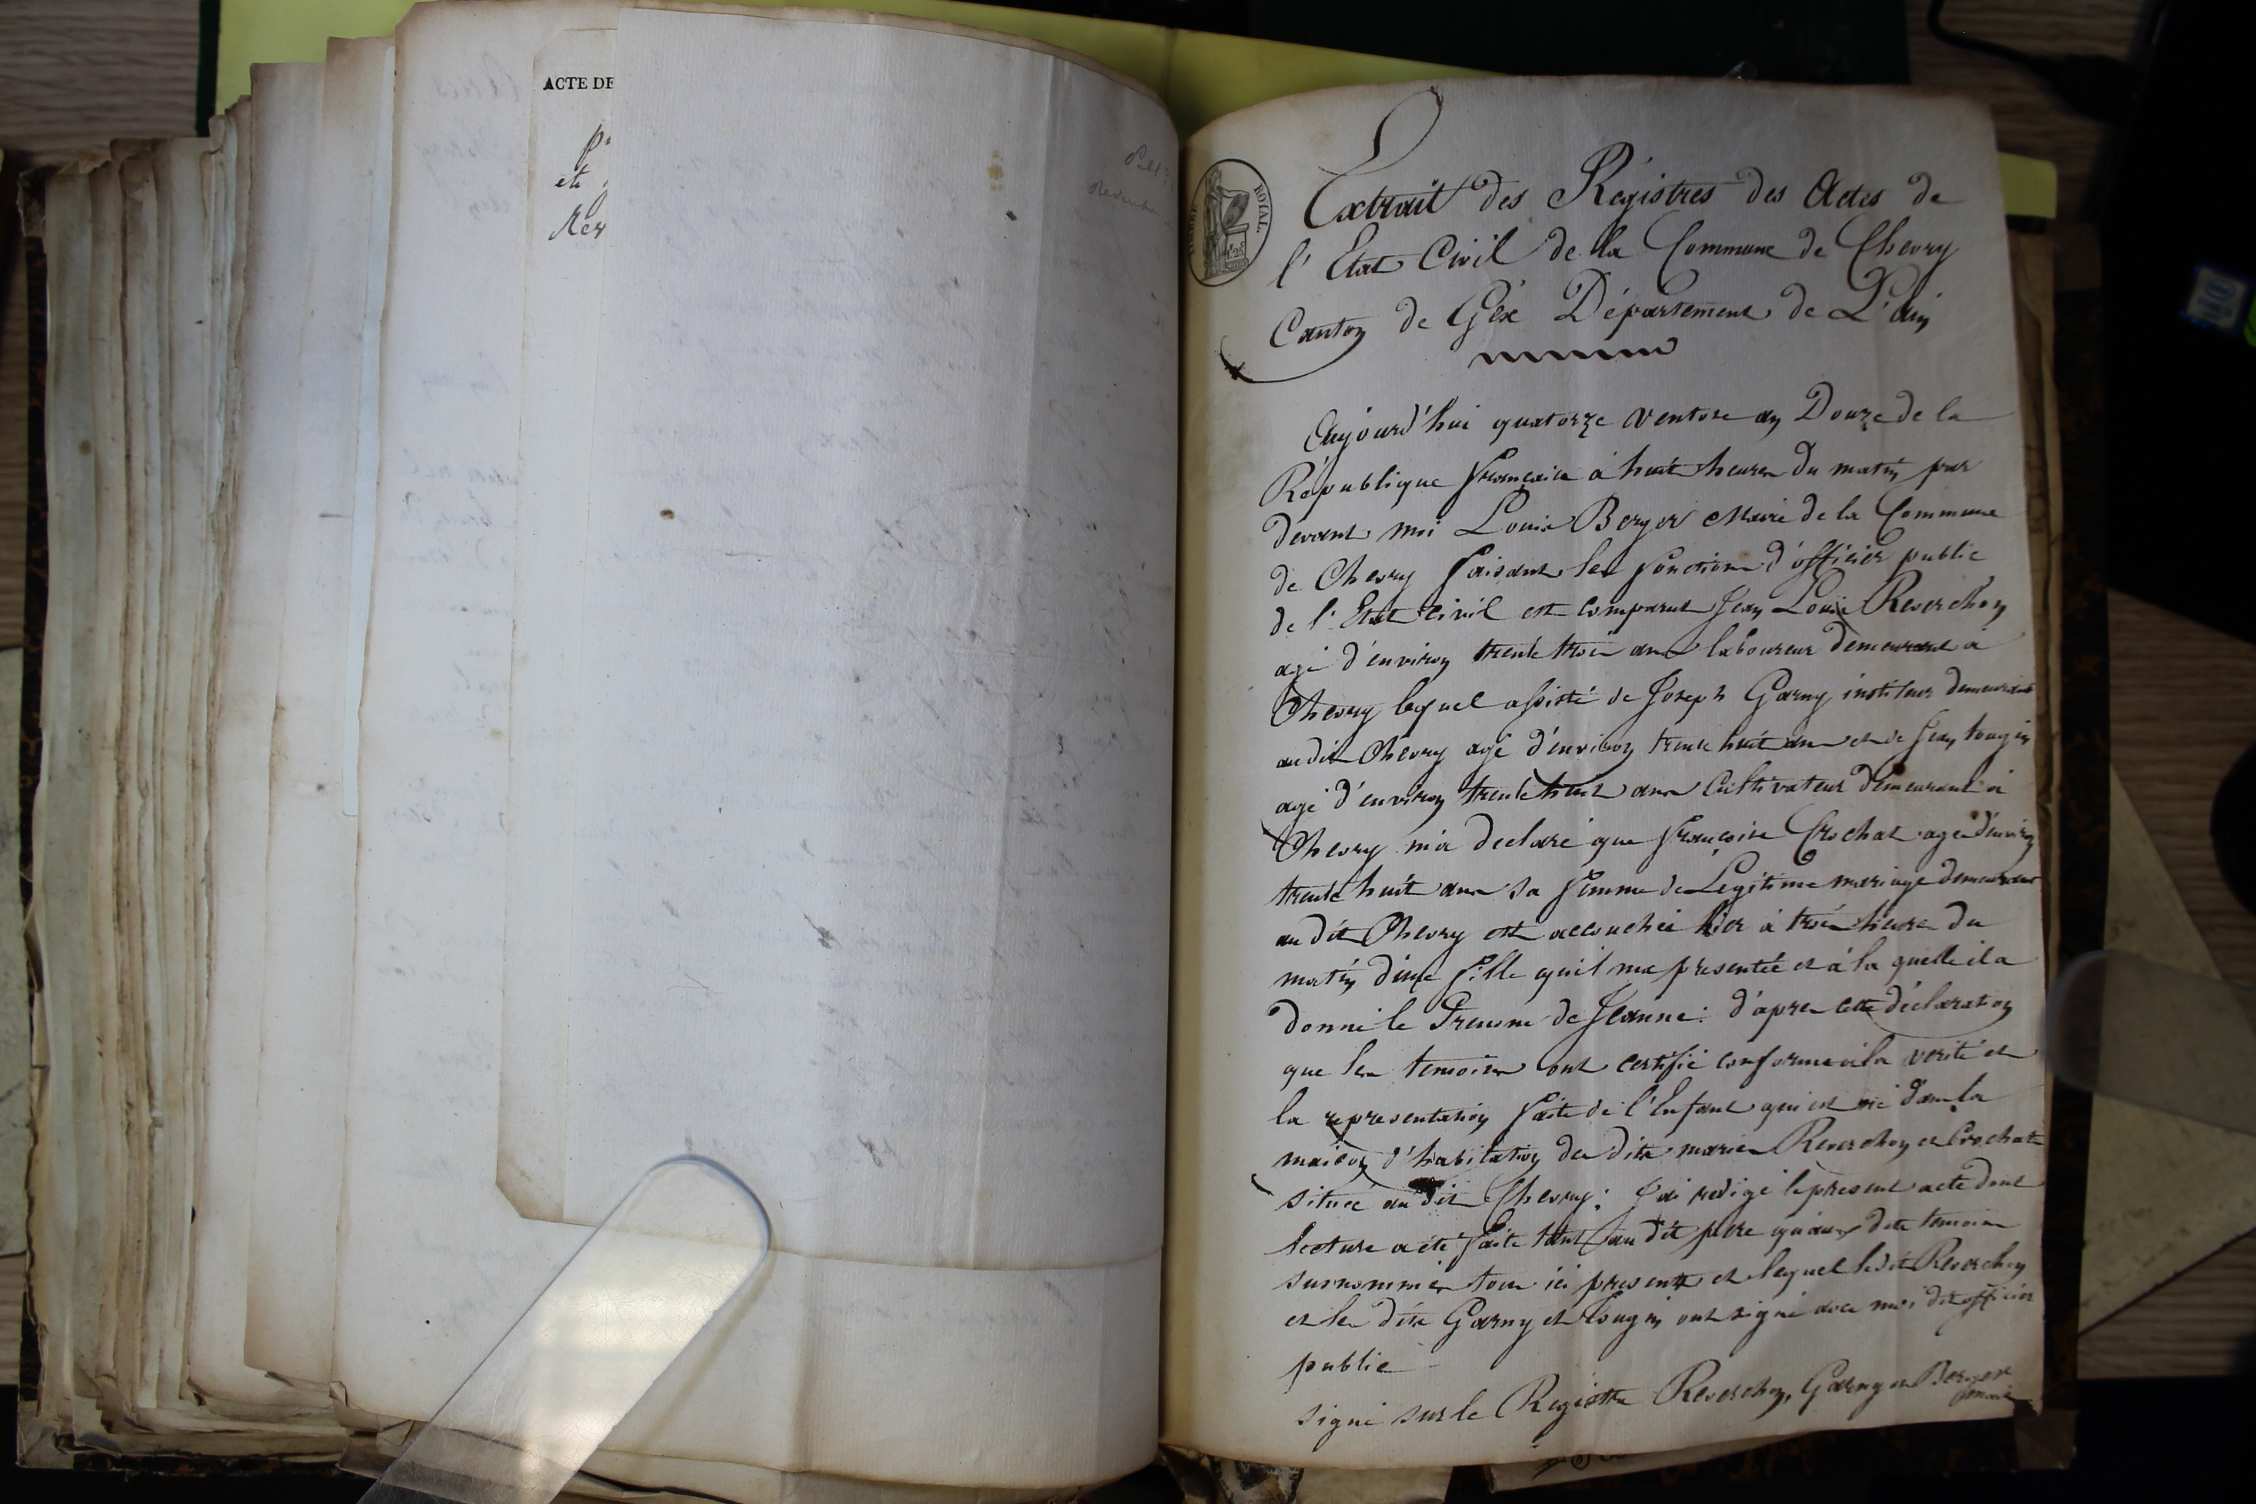 ACTE DE
et
Rev
ROYAL
Extrait des Régistres des Actes de
l'Etat Civil de la Commune de Chevry
Canton de Géx Département de L'ain
Aujourd'hui quatorze ventose an Douze de la
République française à huit heures du matin par
devant moi Louis Berger Maire de la Commune
de Chevry faisant les fonctions d'officier public
de l'Etat civil est comparut Jean Louis Reverchon
agé d'environ trente trois ans laboureur demeurant à
Chevry lequel assisté de Joseph Garny instituer demeurant
au dit Chevry agé d'environ trente huit ans et de Jean tougin
agé d'environ trente huit ans Cultivateur demeurant à
Chevry m'a declaré que françoise Crochat agé d'environ
trente huit ans sa femme de Légitime mariage demeurant
au dit Chevry est accouchéé hier à trois heures du
matin d'une fille qu'il ma presentée et à la quelle il a
donné le Prenom de Jeanne: d'apres cette déclaration
que les temoins ont certifié conforme à la verité et
la representation faite de l'Enfant qui est né dans la
maison d'habitation des dits mariés Reverchon et Crochat
située au dit Chevry: J'ai redigé le present acte dont
lecture a été faite tant au dit pere qu'aux dits temoins
surnommés tous ici presents et lequel le dit Reverchon
et les dits Garny et Tougin ont signé avec moi dit officier
public
signé sur le Registre Reverchon, Garny et Berger